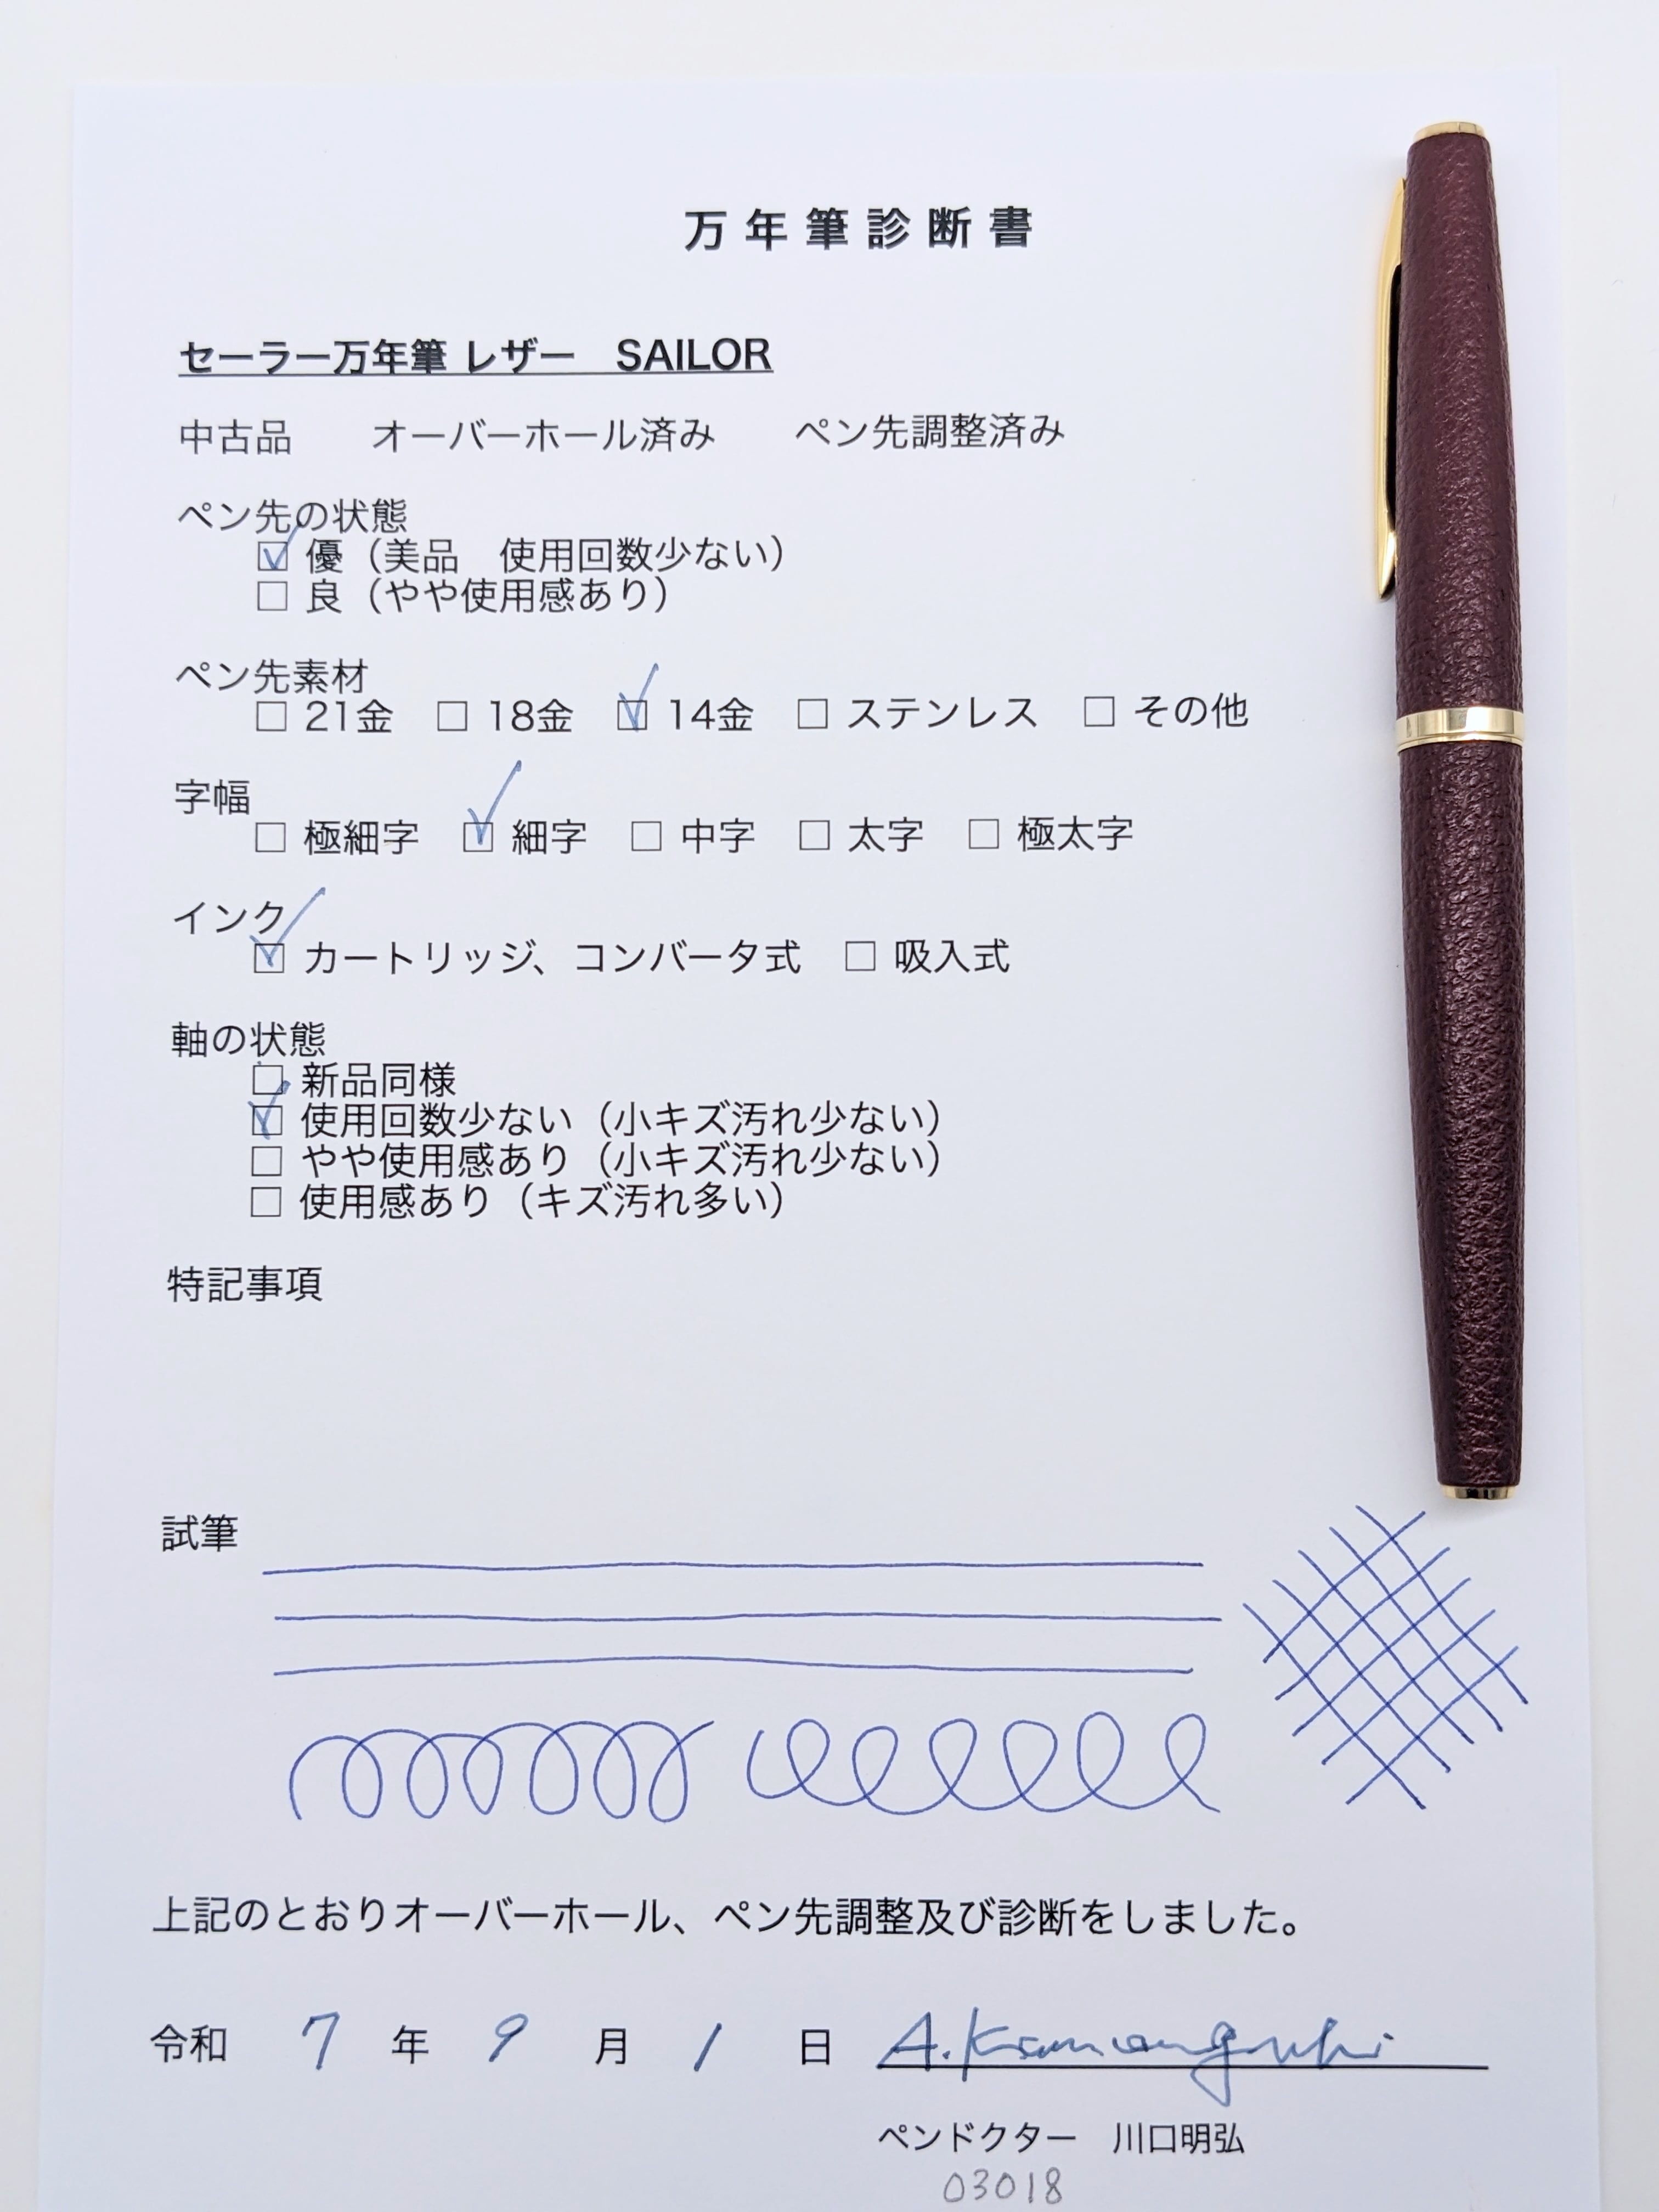 万年筆診断書
セーラー万年筆 レザー　SAILOR
中古品　　オーバーホール済み　　ペン先調整済み
ペン先の状態
☑ 優（美品　使用回数少ない）
□ 良（やや使用感あり）
ペン先素材
□ 21金　□ 18金　☑ 14金　□ ステンレス　□ その他
字幅
□ 極細字　☑ 細字　□ 中字　□ 太字　□ 極太字
インク
☑ カートリッジ、コンバータ式　□ 吸入式
軸の状態
□ 新品同様
☑ 使用回数少ない（小キズ汚れ少ない）
□ やや使用感あり（小キズ汚れ少ない）
□ 使用感あり（キズ汚れ多い）
特記事項
試筆
上記のとおりオーバーホール、ペン先調整及び診断をしました。
令和 7 年 9 月 1 日 A.Kawaguchi
ペンドクター　川口明弘
03018